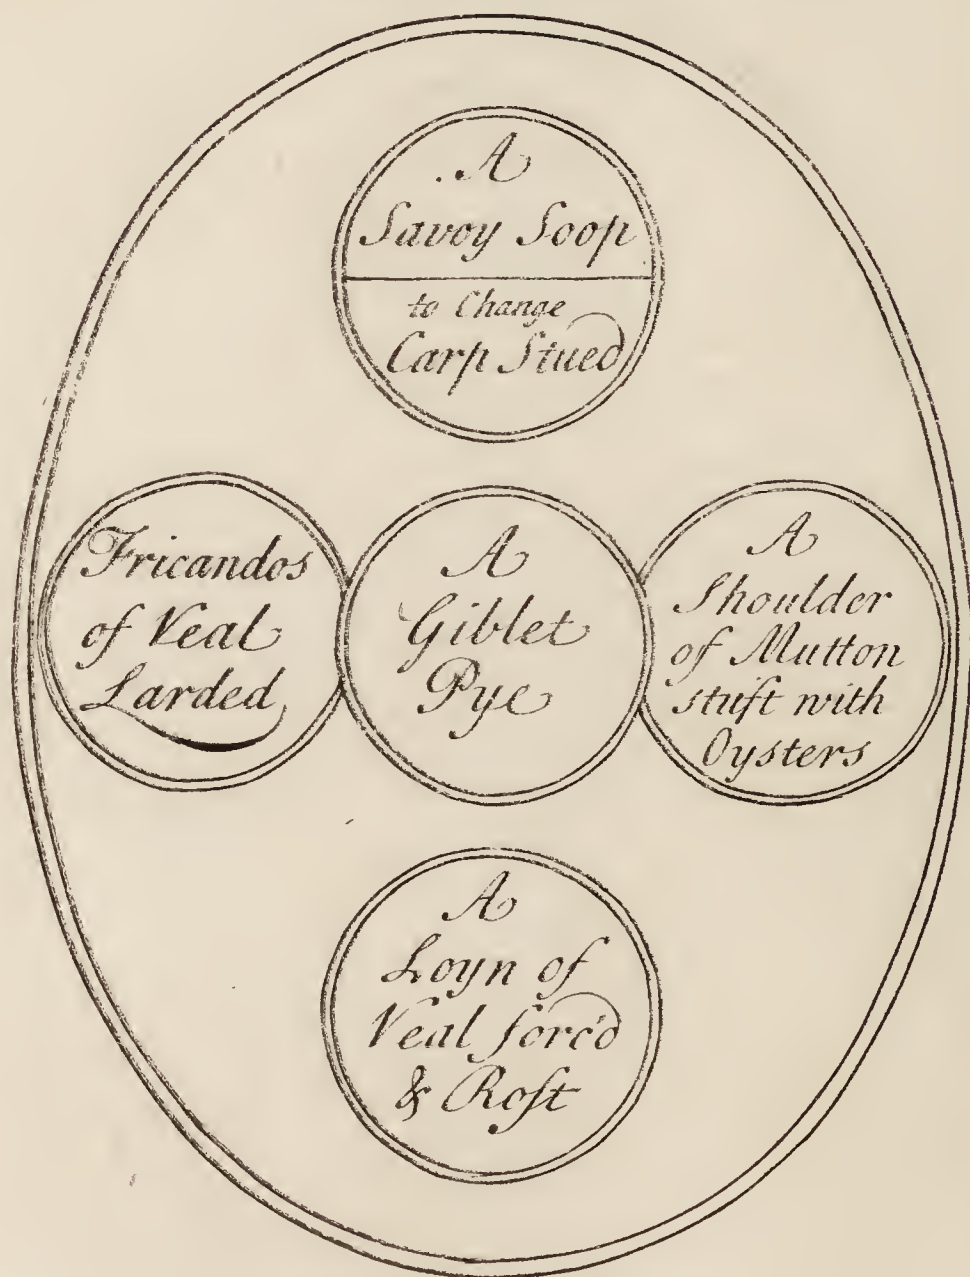 A
Savoy Soop
to Change
Carp Stued
Fricandos
of Veal
Larded
A
Giblet
Pye
A
Shoulder
of Mutton
stuft with
Oysters
A
Loyn of
Veal forc'd
& Rost